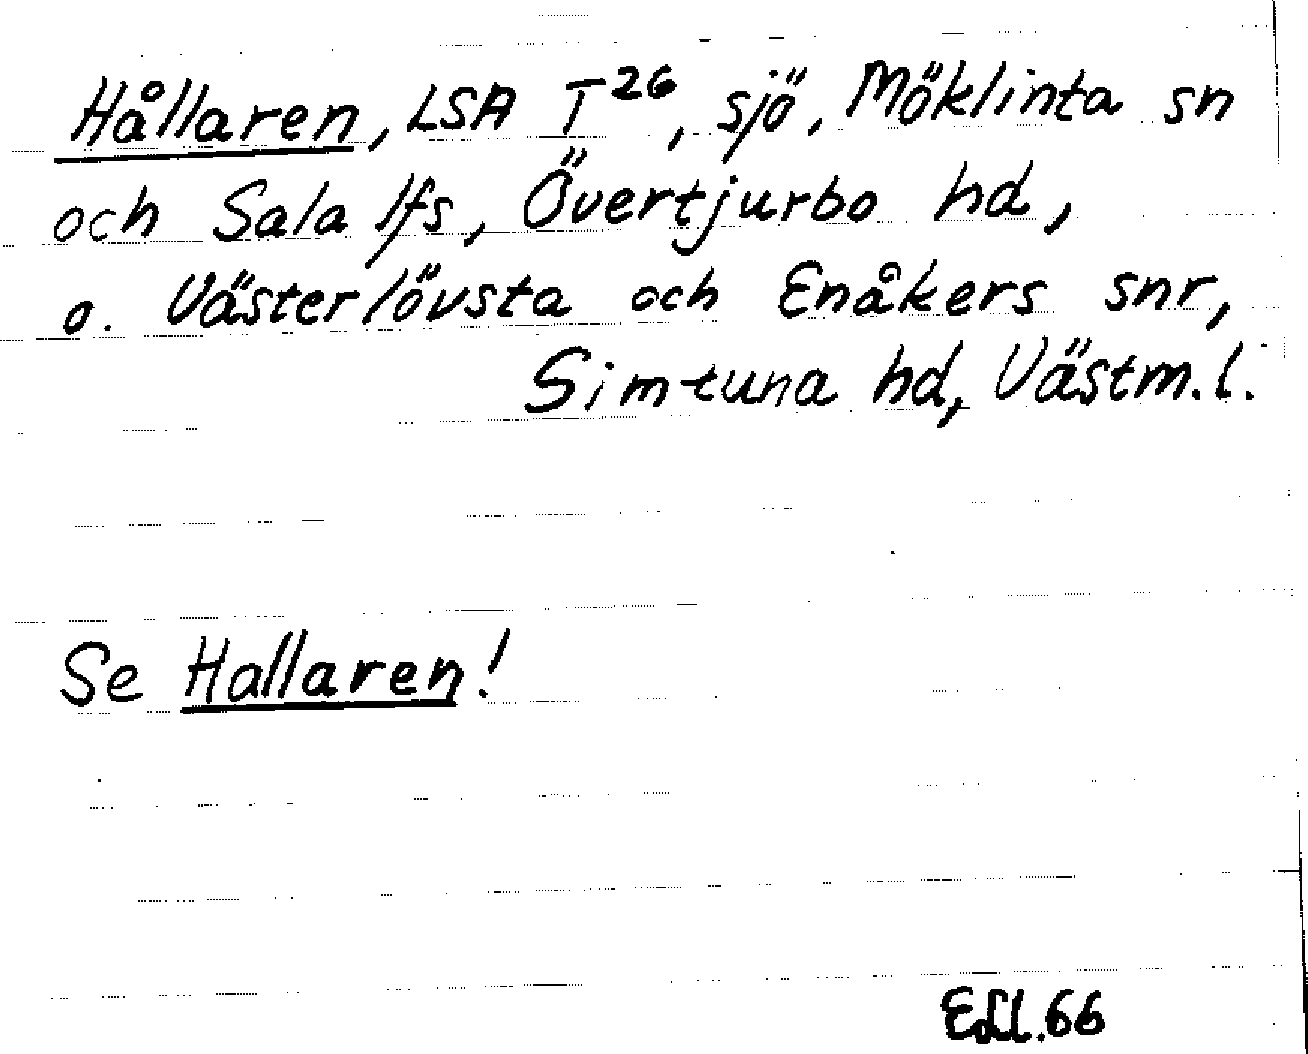 Hållaren, LSA T26, sjö, Möklinta sn
och Sala lfs, Övertjurbo hd,
o. Västerlövsta och Enåkers snr,
Simtuna hd, Västm.l.
Se Hallaren!